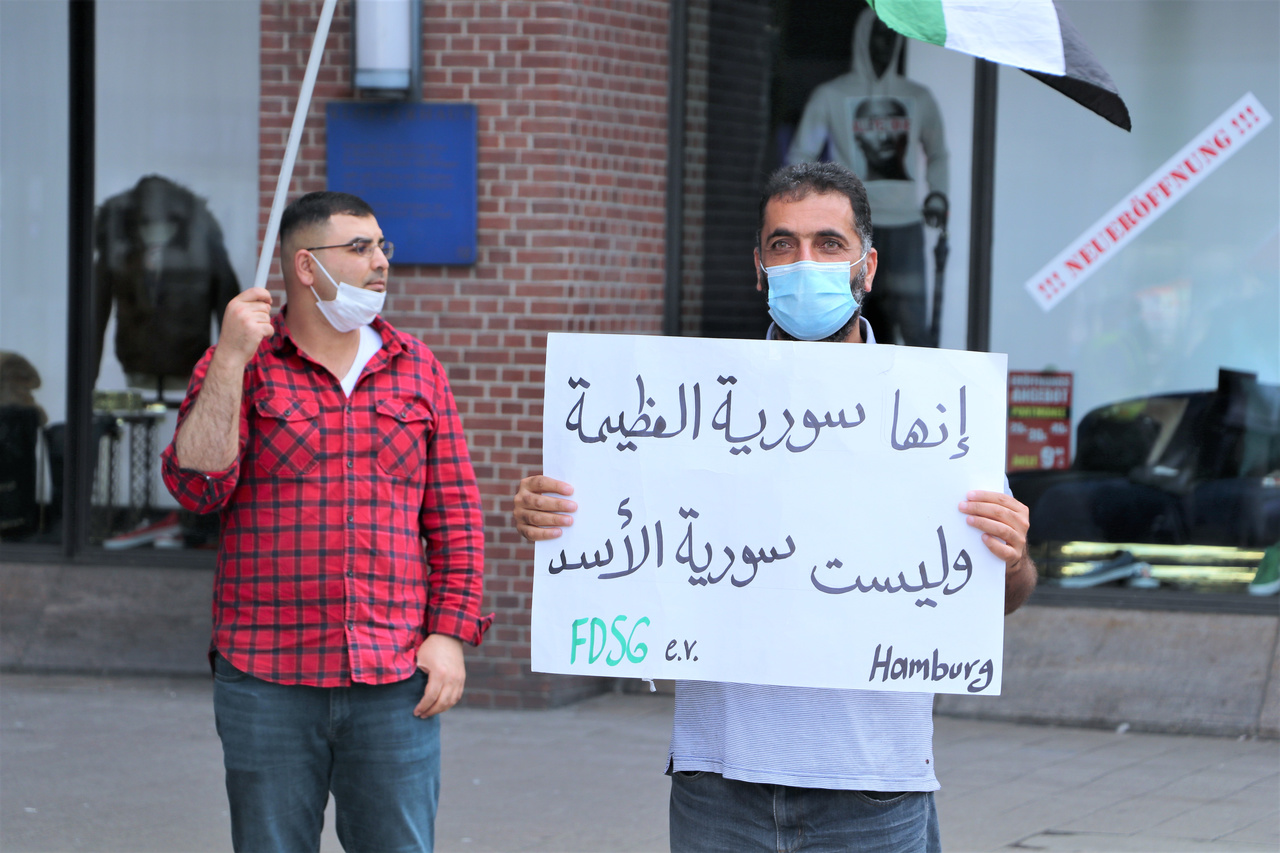 إنها سورية العظيمة
وليست سورية الأسد
FDSG e.v. Hamburg
!!! NEUERÖFFNUNG !!!
ANGEBOT